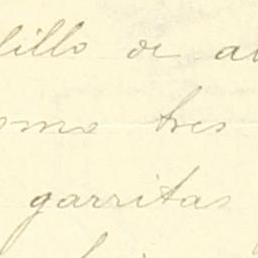 dillo de
como tres
garritas